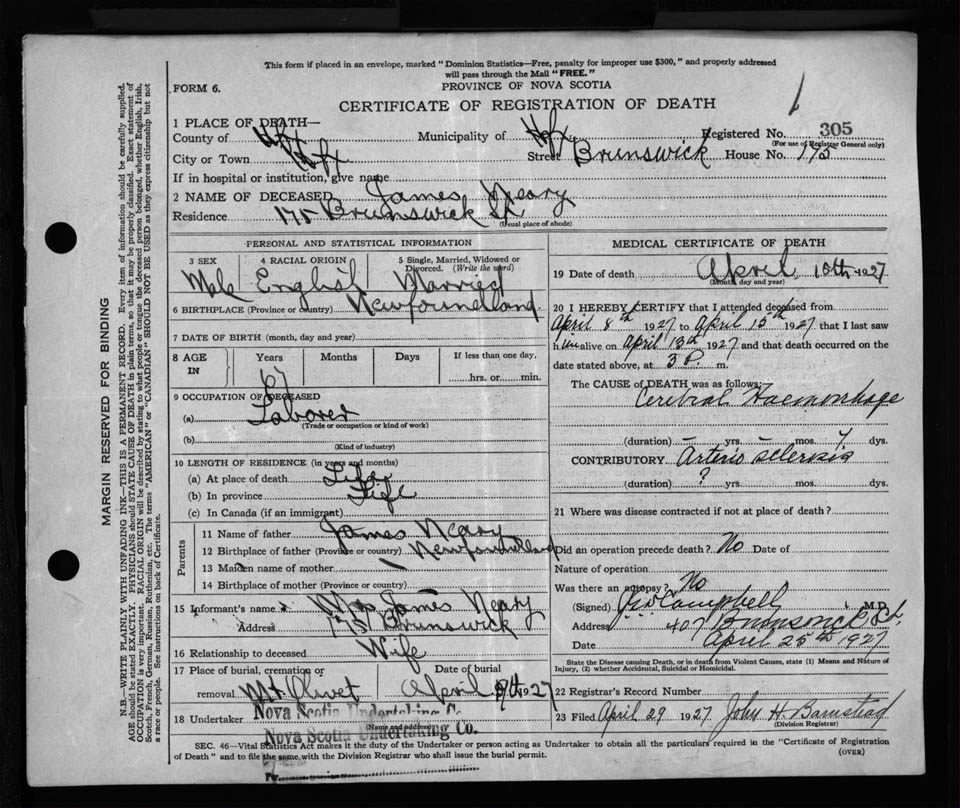 This form if placed in an envelope, marked "Dominion Statistics—Free, penalty for improper use $300," and properly addressed
will pass through the Mail "FREE."
FORM 6.
PROVINCE OF NOVA SCOTIA
CERTIFICATE OF REGISTRATION OF DEATH
1 PLACE OF DEATH—
County of Hfx Municipality of Hfx Registered No. 305
(For use of Registrar General only)
City or Town Hfx Street Brunswick House No. 175
If in hospital or institution, give name
2 NAME OF DECEASED James Neary
Residence 175 Brunswick St
(Usual place of abode)
PERSONAL AND STATISTICAL INFORMATION
3 SEX 4 RACIAL ORIGIN 5 Single, Married, Widowed or Divorced. (Write the word)
Male English Married
6 BIRTHPLACE (Province or country) Newfoundland
7 DATE OF BIRTH (month, day and year)
8 AGE IN Years Months Days If less than one day,
67 hrs. or min.
9 OCCUPATION OF DECEASED
(a) Laborer
(Trade or occupation or kind of work)
(b)
(Kind of industry)
10 LENGTH OF RESIDENCE (in years and months)
(a) At place of death Life
(b) In province Life
(c) In Canada (if an immigrant)
Parents
11 Name of father James Neary
12 Birthplace of father (Province or country) Newfoundland
13 Maiden name of mother
14 Birthplace of mother (Province or country)
15 Informant's name Mrs James Neary
Address 175 Brunswick
16 Relationship to deceased Wife
17 Place of burial, cremation or removal Mt Olivet Date of burial April 1927
18 Undertaker Nova Scotia Undertaking Co.
(Name and address)
Nova Scotia Undertaking Co.
Per
MEDICAL CERTIFICATE OF DEATH
19 Date of death April 15th 1927
(Month, day and year)
20 I HEREBY CERTIFY that I attended deceased from
April 8th 1927 to April 15th 1927 that I last saw
him alive on April 13th 1927 and that death occurred on the
date stated above, at 3 P. m.
The CAUSE of DEATH was as follows:
Cerebral Haemorrhage
(duration) – yrs. – mos. 7 dys.
CONTRIBUTORY Arterio sclerosis
(duration) ? yrs. mos. dys.
21 Where was disease contracted if not at place of death?
Did an operation precede death? No Date of
Nature of operation
Was there an autopsy? No
(Signed) Campbell M.D.
Address 407 Brunswick St.
Date April 25th 1927
State the Disease causing Death, or in death from Violent Causes, state (1) Means and Nature of
Injury, (2) whether Accidental, Suicidal or Homicidal.
22 Registrar's Record Number
23 Filed April 29 1927 John H. Barnstead
(Division Registrar)
SEC. 46—Vital Statistics Act makes it the duty of the Undertaker or person acting as Undertaker to obtain all the particulars required in the "Certificate of Registration
of Death" and to file the same with the Division Registrar who shall issue the burial permit.
(OVER)
MARGIN RESERVED FOR BINDING
N.B.—WRITE PLAINLY WITH UNFADING INK—THIS IS A PERMANENT RECORD. Every item of information should be carefully supplied.
AGE should be stated EXACTLY. PHYSICIANS should STATE CAUSE OF DEATH in plain terms, so that it may be properly classified. Exact statement of
OCCUPATION is very important. RACIAL ORIGIN will be described by stating to what people or tongue the deceased person belonged, whether English, Irish,
Scotch, French, German, Russian, Ruthenian, etc. The terms "AMERICAN" or "CANADIAN" SHOULD NOT BE USED as they express citizenship but not
a race or people. See instructions on back of Certificate.